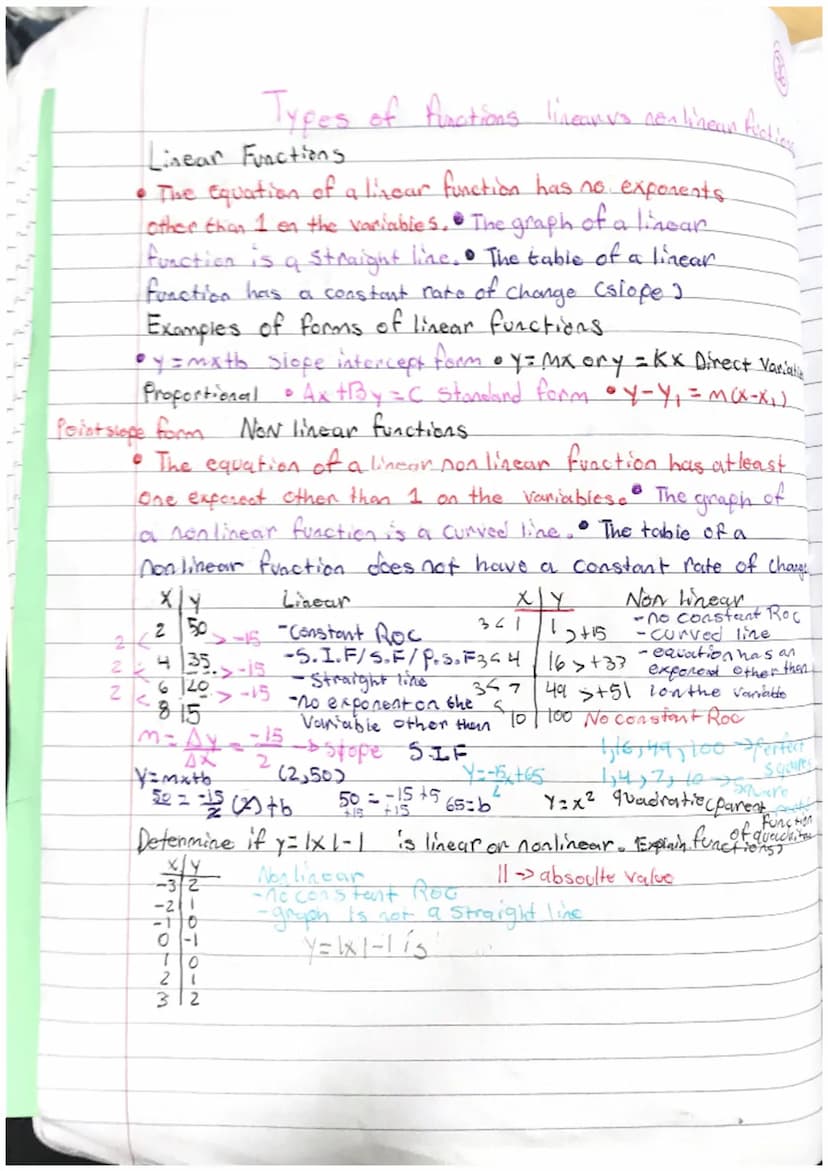 Types of functions linear vs non linear fuction
Linear Functions
• The Equation of a linear function has no exponents
other than 1 on the variables. • The graph of a linear
function is a straight line. • The table of a linear
function has a constant rate of change (slope)
Examples of forms of linear functions
• y=mx+b slope intercept form • y=mx or y=Kx Direct Variatio
Proportional • Ax+By=C Standard form • y-y₁=m(x-x₁)
Point slope form Non linear functions
• The equation of a linear non linear function has at least
one exponent other than 1 on the variables. • The graph of
a nonlinear function is a curved line. • The table of a
nonlinear function does not have a constant rate of change
X | Y Linear X | Y Non linear
2 | 50 -Constant ROC 3< 1 | 1 >+15 -no constant Roc
-curved line
2< >-15
2< 4 | 35 >-15 -S.I.F/S.F/P.S.F 3< 4 | 16 >+33 -equation has an
exponent other then
2< 6 | 20 >-15 -Straight line 3< 7 | 49 >+51 1 on the variable
-no exponent on the
8 | 5 Variable other then 10 | 100 No constant Roc
m=Δy/Δx=-15/2 → slope S.I.F 1,16,49,100 → perfect
squares
y=mx+b (2,50) 1,4,7,10 → square
50=-15/2(2)+b 50=-15+b 65=b y=x² quadratic (parent
+15 +15 function
of quadratic
functions)
Determine if y=|x|-1 is linear or nonlinear. Explain
X | Y Non linear || → absoulte value
-3 | 2 -no constant ROC
-2 | 1 -graph is not a straight line
-1 | 0
0 | -1 y=|x|-1 is
1 | 0
2 | 1
3 | 2